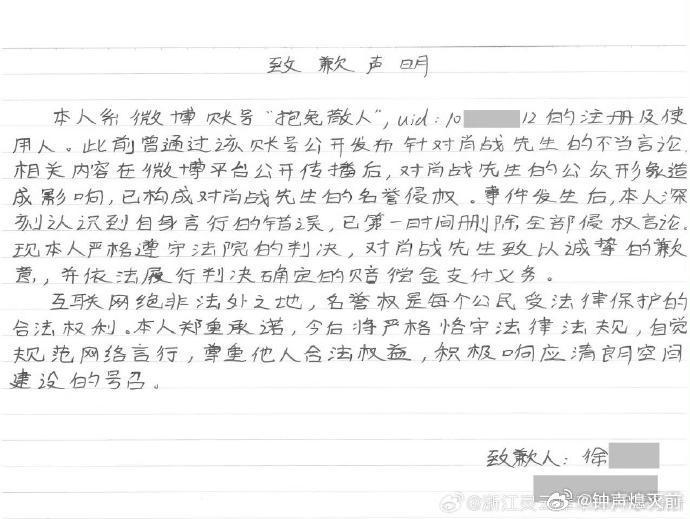 致歉声明
本人系微博账号“抱兔散人”,uid:10 12的注册及使
用人。此前曾通过该账号公开发布针对肖战先生的不当言论,
相关内容在微博平台公开传播后,对肖战先生的公众形象造
成影响,已构成对肖战先生的名誉侵权。事件发生后,本人深
刻认识到自身言行的错误,已第一时间删除全部侵权言论。
现本人严格遵守法院的判决,对肖战先生致以诚挚的歉
意,并依法履行判决确定的赔偿金支付义务。
互联网络非法外之地,名誉权是每个公民受法律保护的
合法权利。本人郑重承诺,今后将严格恪守法律法规,自觉
规范网络言行,尊重他人合法权益,积极响应清朗空间
建设的号召。
致歉人:徐
@浙江灵
@钟声熄灭前